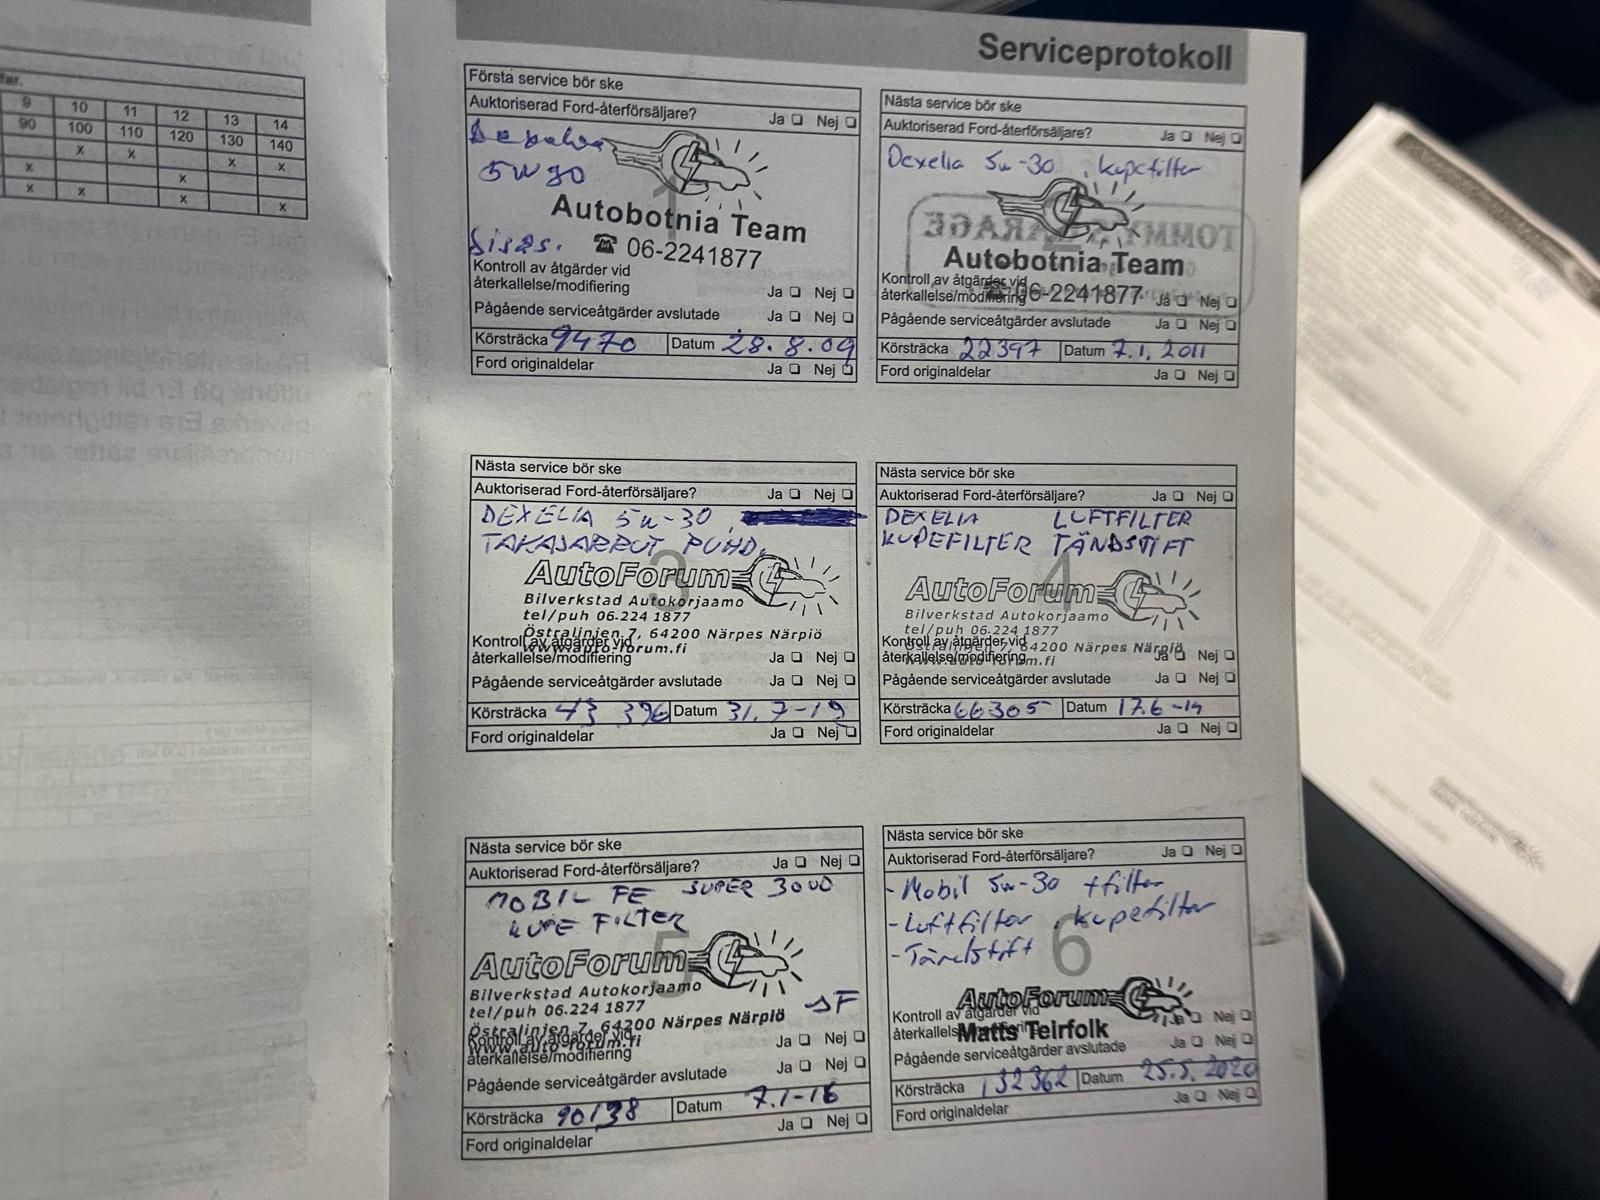 9 10 11 12 13 14
90 100 110 120 130 140
x x x x
x x
x x x x
Serviceprotokoll
Första service bör ske
Auktoriserad Ford-återförsäljare?
Ja ❑ Nej ❑
5W30
1
Autobotnia Team
☎ 06-2241877
Kontroll av åtgärder vid
återkallelse/modifiering Ja ❑ Nej ❑
Pågående serviceåtgärder avslutade Ja ❑ Nej ❑
Körsträcka 9470 Datum 28.8.09
Ford originaldelar Ja ❑ Nej ❑
Nästa service bör ske
Auktoriserad Ford-återförsäljare? Ja ❑ Nej ❑
Dexelia 5w-30, kupefilter
Autobotnia Team
Kontroll av åtgärder vid
☎ 06-2241877
återkallelse/modifiering Ja ❑ Nej ❑
Pågående serviceåtgärder avslutade Ja ❑ Nej ❑
Körsträcka 22397 Datum 7.1.2011
Ford originaldelar Ja ❑ Nej ❑
Nästa service bör ske
Auktoriserad Ford-återförsäljare? Ja ❑ Nej ❑
DEXELIA 5w-30,
TAKAJARRUT PUHD.
3
AutoForum
Bilverkstad Autokorjaamo
tel/puh 06-224 1877
Östralinjen 7, 64200 Närpes Närpiö
Kontroll av åtgärder vid
www.auto-forum.fi
återkallelse/modifiering Ja ❑ Nej ❑
Pågående serviceåtgärder avslutade Ja ❑ Nej ❑
Körsträcka 43 396 Datum
Ford originaldelar Ja ❑ Nej ❑
Nästa service bör ske
Auktoriserad Ford-återförsäljare? Ja ❑ Nej ❑
DEXELIA LUFTFILTER
KUPEFILTER TÄNDSTIFT
4
AutoForum
Bilverkstad Autokorjaamo
tel/puh 06-224 1877
Östralinjen 7, 64200 Närpes Närpiö
Kontroll av åtgärder vid
www.auto-forum.fi
återkallelse/modifiering Ja ❑ Nej ❑
Pågående serviceåtgärder avslutade Ja ❑ Nej ❑
Körsträcka 66305 Datum 17.6-14
Ford originaldelar Ja ❑ Nej ❑
Nästa service bör ske
Auktoriserad Ford-återförsäljare? Ja ❑ Nej ❑
MOBIL FE SUPER 3000
KUPE FILTER
5
AutoForum
Bilverkstad Autokorjaamo
tel/puh 06.224 1877
Östralinjen 7, 64200 Närpes Närpiö
SF
Kontroll av åtgärder vid
www.auto-forum.fi
återkallelse/modifiering Ja ❑ Nej ❑
Pågående serviceåtgärder avslutade Ja ❑ Nej ❑
Körsträcka 90138 Datum 7.1-16
Ford originaldelar Ja ❑ Nej ❑
Nästa service bör ske
Auktoriserad Ford-återförsäljare? Ja ❑ Nej ❑
- Mobil 5w-30 +filter
- Luftfilter, kupefilter
- Tändstift
6
AutoForum
Kontroll av åtgärder vid
Matts Teirfolk
återkallelse/modifiering Ja ❑ Nej ❑
Pågående serviceåtgärder avslutade Ja ❑ Nej ❑
Körsträcka 132362 Datum 25.5.2020
Ford originaldelar Ja ❑ Nej ❑